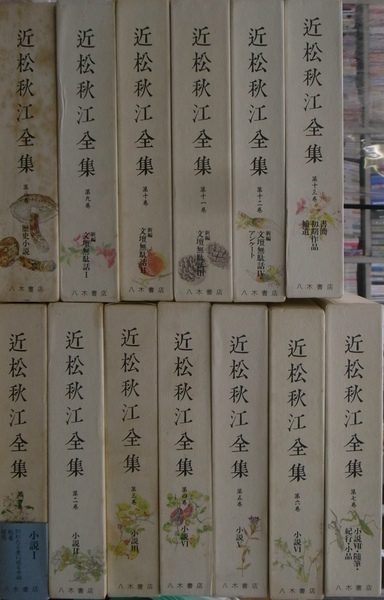 近松秋江全集
第八巻
歴史小説
八木書店
近松秋江全集
第九巻
新編
文壇無駄話Ⅰ
八木書店
近松秋江全集
第十巻
新編
文壇無駄話Ⅱ
八木書店
近松秋江全集
第十一巻
新編
文壇無駄話Ⅲ
八木書店
近松秋江全集
第十二巻
新編
文壇無駄話Ⅳ
アンケート
八木書店
近松秋江全集
第十三巻
書簡
初期作品
補遺
八木書店
近松秋江全集
小説Ⅰ
近松秋江全集
第二巻
小説Ⅱ
八木書店
近松秋江全集
第三巻
小説Ⅲ
八木書店
近松秋江全集
第四巻
小説Ⅵ
八木書店
近松秋江全集
第五巻
小説Ⅴ
八木書店
近松秋江全集
第六巻
小説Ⅵ
八木書店
近松秋江全集
第七巻
小説Ⅶ・随筆・
紀行・小品
八木書店